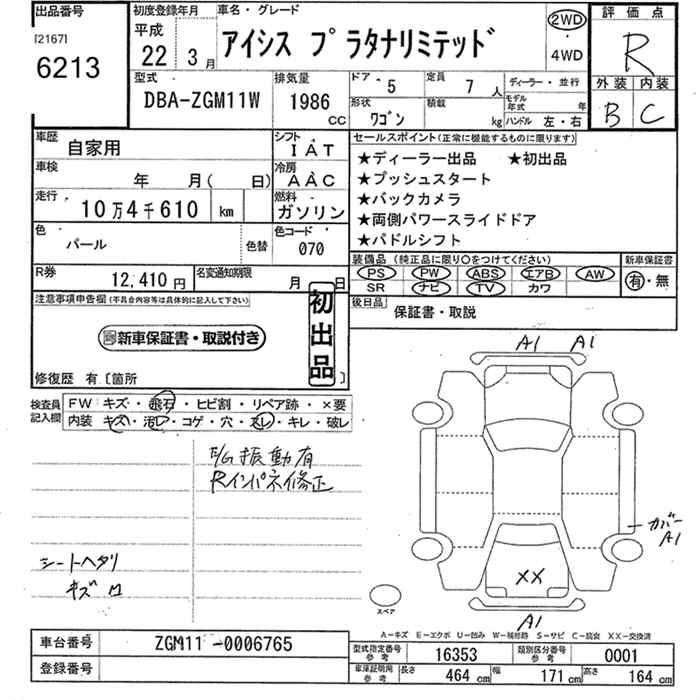 出品番号
[2167]
6213
初度登録年月
平成
22年 3月
車名・グレード
アイシス プラタナリミテッド
2WD
4WD
評価点
R
外装 内装
B C
型式
DBA-ZGM11W
排気量
1986
CC
ドア 5
定員 7人
形状 ワゴン
積載 kg
ディーラー・並行
モデル年式 年
ハンドル 左・右
車歴 自家用
シフト IAT
車検 年 月( 日)
冷房 AAC
走行 10万4千610 km
燃料 ガソリン
色 パール
色替
色コード 070
R券 12,410円
名変通知期限 月 日
セールスポイント(正常に機能するものに限ります)
★ディーラー出品 ★初出品
★プッシュスタート
★バックカメラ
★両側パワースライドドア
★パドルシフト
装備品 (純正品に限り○をつけてください)
新車保証書
PS PW ABS エアB AW
SR ナビ TV カワ
有・無
後日品 保証書・取説
注意事項申告欄(不具合内容等は具体的に記入して下さい)
新車保証書・取説付き
初出品
修復歴 有〔箇所 〕
検査員記入欄
FW キズ・飛石・ヒビ割・リペア跡・×要
内装 キズ・汚レ・コゲ・穴・スレ・キレ・破レ
E/G振動有
Rインパネ修正
シートヘタリ
キズ
A1 A1
カバー
A1
XX
A1
スペア
A−キズ E−エクボ U−凹み W−補修跡 S−サビ C−腐食 XX−交換済
車台番号 ZGM11 -0006765
登録番号
型式指定番号 参考 16353
類別区分番号 参考 0001
車庫証明用 参考 長さ 464cm 幅 171cm 高さ 164cm